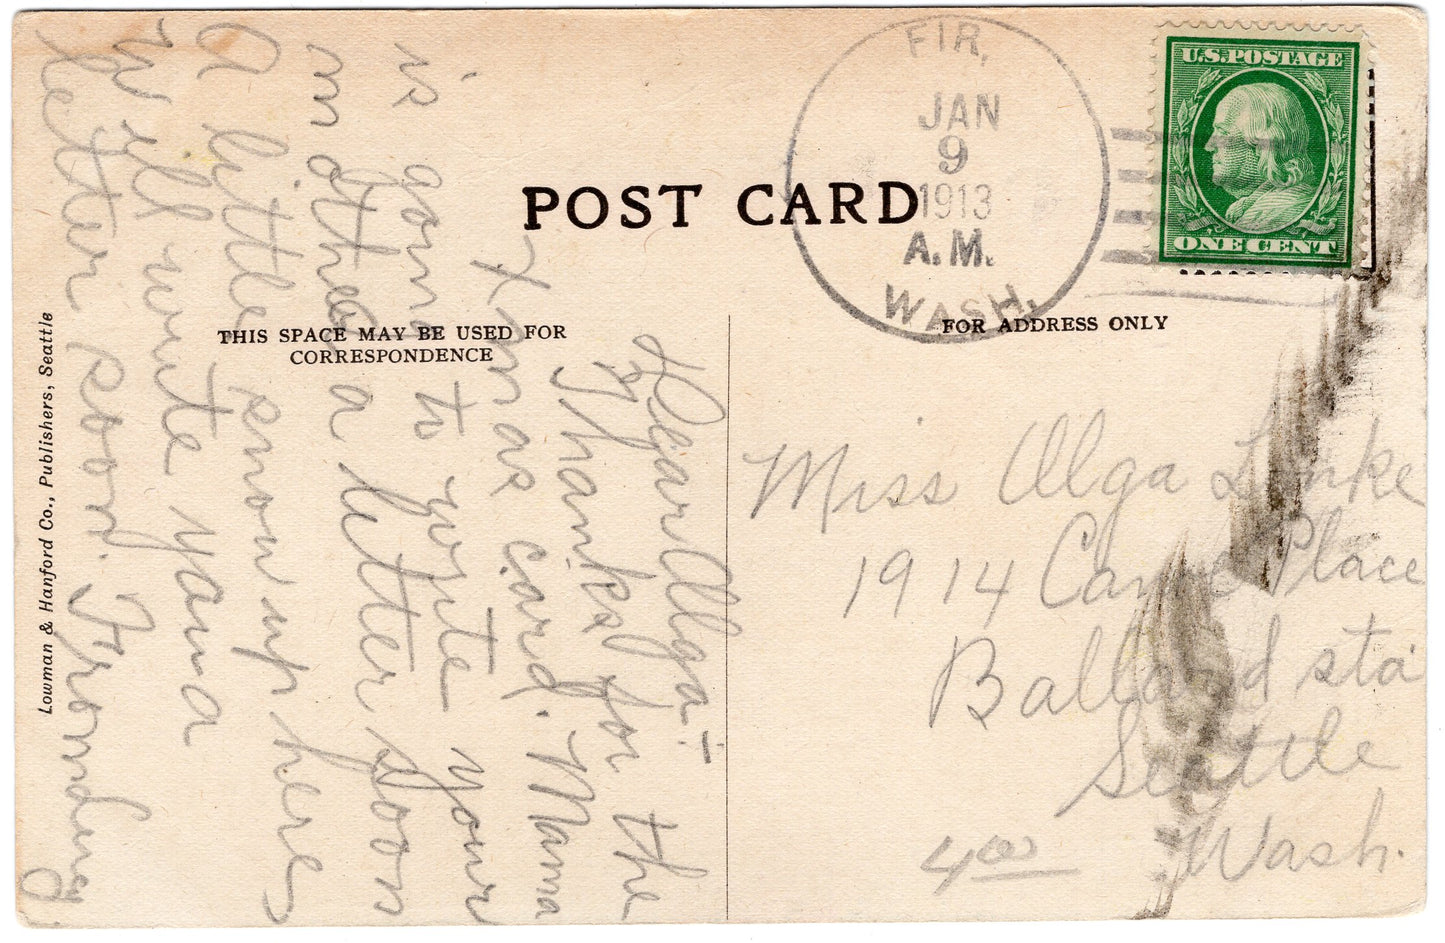 POST CARD
FIR,
JAN
9
1913
A.M.
WASH.
U.S. POSTAGE
ONE CENT
THIS SPACE MAY BE USED FOR
CORRESPONDENCE
FOR ADDRESS ONLY
Dear Olga: -
Thanks for the
Xmas card. Mama
is going to write your
mother a letter soon
A little snow up here
Will write you a
letter soon. From
Miss Olga Linke
1914 Place
Ballard sta
Seattle
Wash.
4 00
Lowman & Hanford Co., Publishers, Seattle